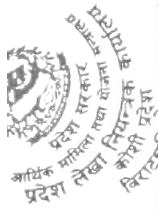 प्रदेश सरकार
आर्थिक मामिला तथा योजना मन्त्रालय
प्रदेश लेखा नियन्त्रक कार्यालय
कोशी प्रदेश